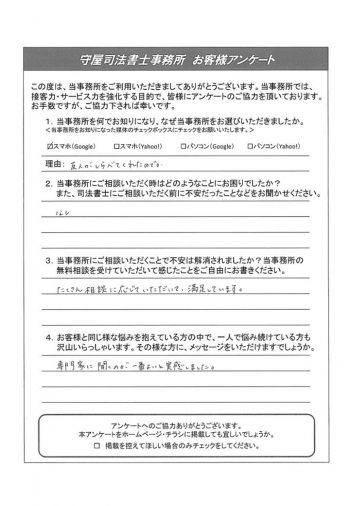 守屋司法書士事務所 お客様アンケート
この度は、当事務所をご利用いただきましてありがとうございます。当事務所では、
接客力・サービス力を強化する目的で、皆様にアンケートのご協力を頂いております。
お手数ですが、ご協力下されば幸いです。
1. 当事務所を何でお知りになり、なぜ当事務所をお選びいただきましたか。
<当事務所をお知りになった媒体のチェックボックスにチェックをお願いいたします。>
☑スマホ(Google) □スマホ(Yahoo!) □パソコン(Google) □パソコン(Yahoo!)
理由: 友人がしらべてくれたので。
2. 当事務所にご相談いただく時はどのようなことにお困りでしたか?
また、司法書士にご相談いただく前に不安だったことなどをお聞かせください。
はい
3. 当事務所にご相談いただくことで不安は解消されましたか?当事務所の
無料相談を受けていただいて感じたことをご自由にお書きください。
たくさん相談に応じていただいて、満足しています。
4. お客様と同じ様な悩みを抱えている方の中で、一人で悩み続けている方も
沢山いらっしゃいます。その様な方に、メッセージをいただけますでしょうか。
専門家に聞くのが一番よいと実感しました。
アンケートへのご協力ありがとうございます。
本アンケートをホームページ・チラシに掲載しても宜しいでしょうか。
□ 掲載を控えてほしい場合のみチェックをしてください。